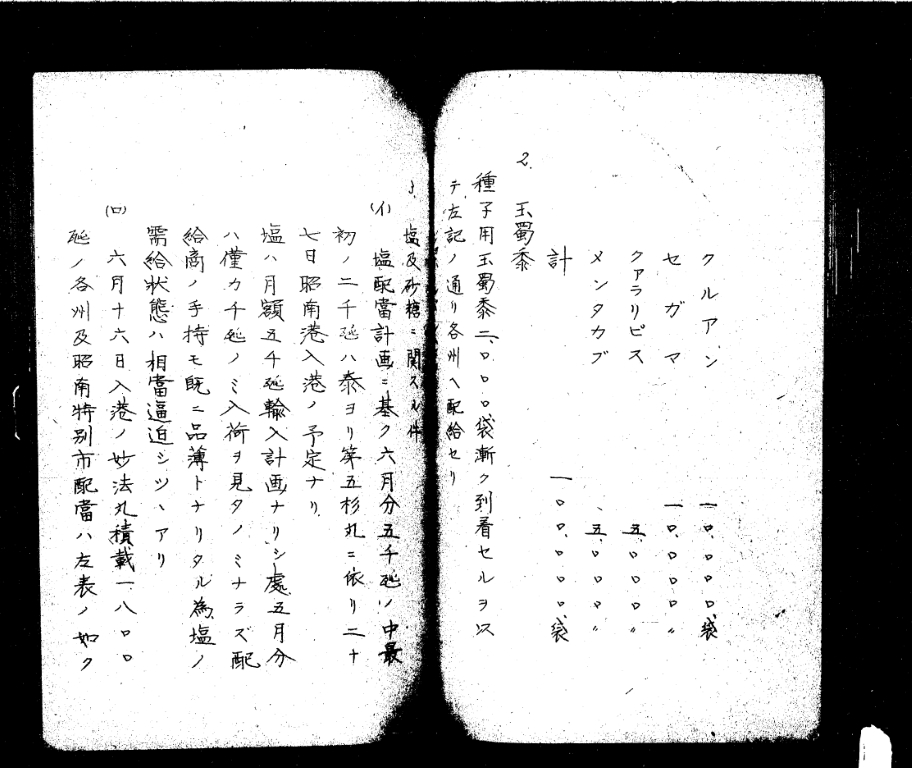 クルアン 一〇、〇〇〇袋
セガマ 一〇、〇〇〇〃
クアラリピス 五、〇〇〇〃
メンタカブ 五、〇〇〇〃
計 一〇〇、〇〇〇袋
2. 玉蜀黍
種子用玉蜀黍二、〇〇〇袋漸ク到着セルヲ以
テ左記ノ通リ各州ヘ配給セリ
3. 塩及砂糖ニ関スル件
(イ) 塩配當計画ニ基ク六月分五千瓲ノ中最
初ノ二千瓲ハ泰ヨリ第五杉丸ニ依リ二十
七日昭南港入港ノ予定ナリ
塩ハ月額五千瓲輸入計画ナリシ處五月分
ハ僅カ千瓲ノミ入荷ヲ見タノミナラズ配
給商ノ手持モ既ニ品薄トナリタル為塩ノ
需給状態ハ相當逼迫シツヽアリ
(ロ) 六月十六日入港ノ妙法丸積載一、八〇〇
瓲ノ各州及昭南特別市配當ハ左表ノ如ク